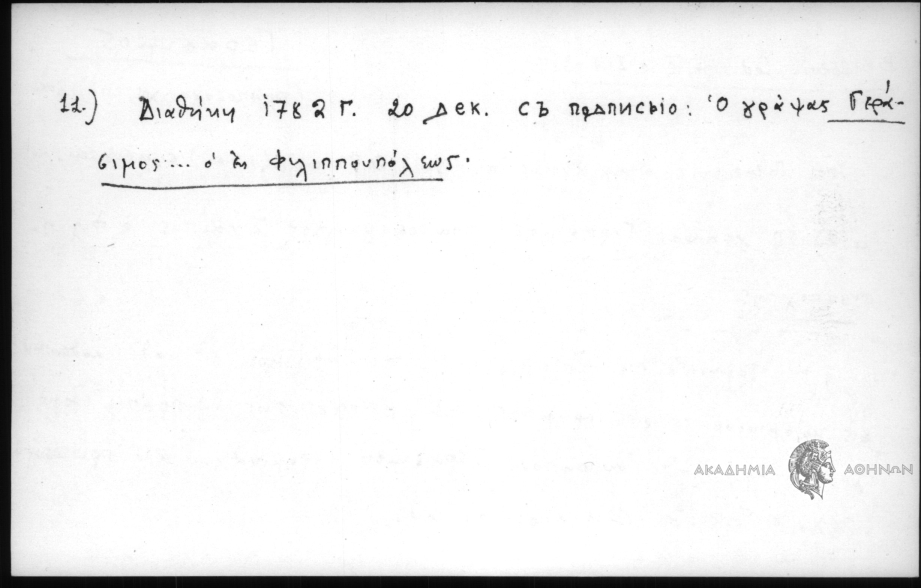 11.) Διαθήκη 1782 г. 20 дек. съ подписью: Ὁ γράψας Γερά-
σιμος... ὁ ἐκ Φιλιππουπόλεως.
ΑΚΑΔΗΜΙΑ ΑΘΗΝΩΝ